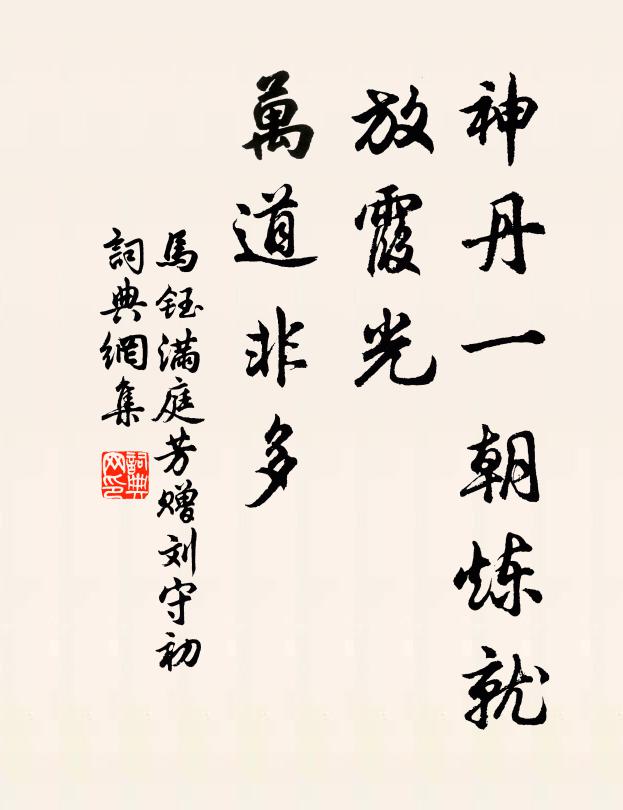 神丹一朝炼就
放霞光
萬道非多
馬鈺滿庭芳赠刘守初
詞典網集
詞典
网印